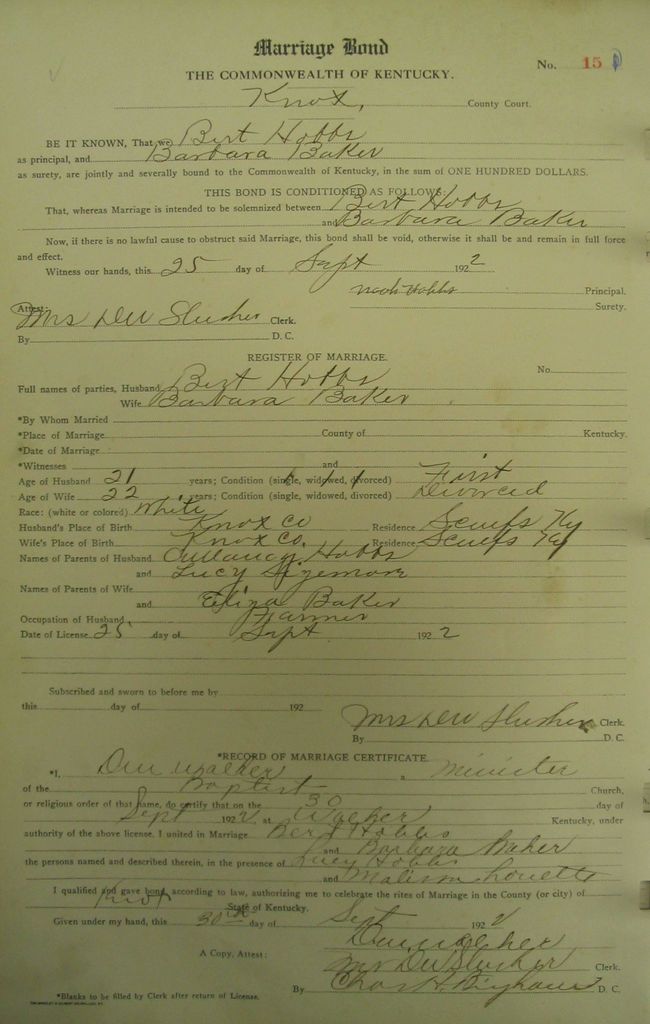 Marriage Bond
No. 15
THE COMMONWEALTH OF KENTUCKY.
Knox, County Court.
BE IT KNOWN, That we Bert Hobbs
as principal, and Barbara Baker
as surety, are jointly and severally bound to the Commonwealth of Kentucky, in the sum of ONE HUNDRED DOLLARS.
THIS BOND IS CONDITIONED AS FOLLOWS:
That, whereas Marriage is intended to be solemnized between Bert Hobbs
and Barbara Baker
Now, if there is no lawful cause to obstruct said Marriage, this bond shall be void, otherwise it shall be and remain in full force
and effect.
Witness our hands, this 25 day of Sept 1922
Hobbs Principal.
Surety.
Attest:
Mrs DW Slusher Clerk.
By D. C.
REGISTER OF MARRIAGE.
No.
Full names of parties, Husband Bert Hobbs
Wife Barbara Baker
*By Whom Married
*Place of Marriage County of Kentucky.
*Date of Marriage
*Witnesses and
Age of Husband 21 years; Condition (single, widowed, divorced) First
Age of Wife 22 years; Condition (single, widowed, divorced) Divorced
Race: (white or colored) White
Husband's Place of Birth Knox Co Residence Scuffs Ky
Wife's Place of Birth Knox Co. Residence Scuffs Ky
Names of Parents of Husband Hobbs
and Lucy Sizemore
Names of Parents of Wife
and Eliza Baker
Occupation of Husband Farmer
Date of License 25 day of Sept 1922
Subscribed and sworn to before me by
this day of 192
Mrs DW Slusher Clerk.
By D. C.
*RECORD OF MARRIAGE CERTIFICATE
*I, Walker a Minister
of the Baptist Church,
or religious order of that name, do certify that on the 30 day of
Sept 1922 at Walker Kentucky, under
authority of the above license, I united in Marriage Bert Hobbs
and Barbara Baker
the persons named and described therein, in the presence of Lucy Hobbs
and
I qualified and gave bond according to law, authorizing me to celebrate the rites of Marriage in the County (or city) of
Knox State of Kentucky.
Given under my hand, this 30th day of Sept 1922
Walker
A Copy, Attest: Mrs DW Slusher Clerk.
By Chas H. Bingham D. C.
*Blanks to be filled by Clerk after return of License.